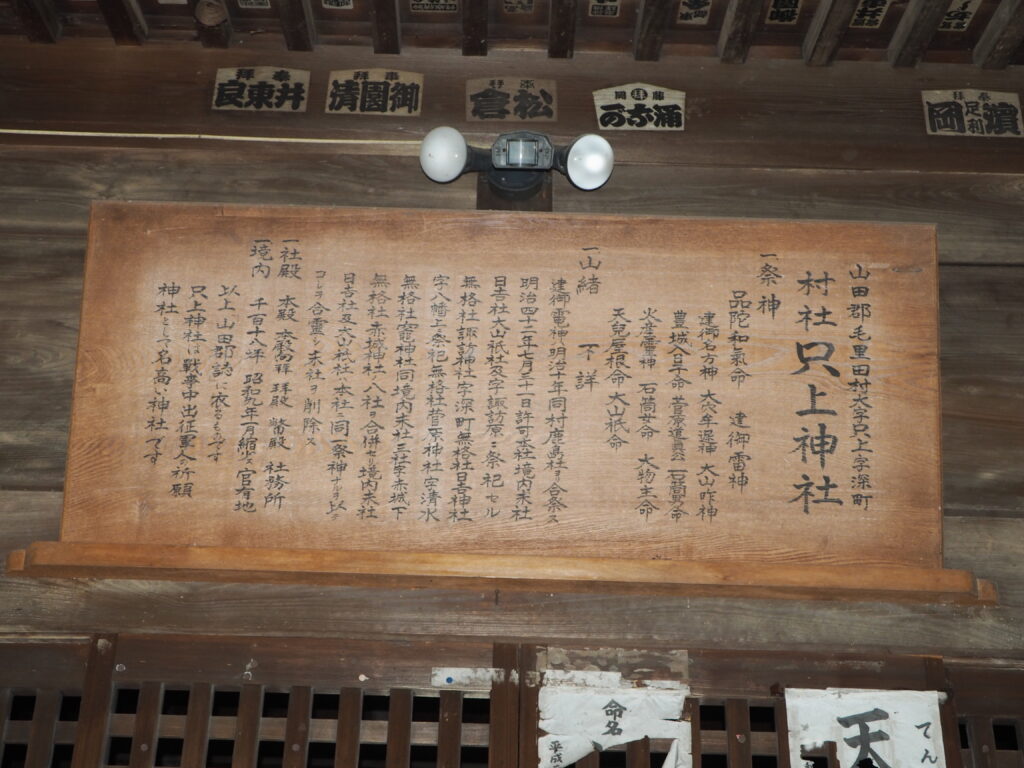 奉拝
井東良
奉拝
御園清
奉拝
松倉
足利
濱岡
山田郡毛里田村大字只上字深町
村社只上神社
一祭神
品陀和氣命 建御雷神
建御名方神 大穴牟遅神 大山咋神
豊城入日子命 菅原道真公
火産霊神 石筒女命 大物主命
天兒屋根命 大山祇命
一由緒 不詳
建御雷神ハ明治十年同村鹿島社ヲ合祭ス
明治四十二年七月三十一日許可本社境内末社
日吉社大山祇社及字諏訪原ニ祭祀セル
無格社諏訪神社字深町無格社日吉神社
字八幡上祭祀無格社菅原神社字清水
無格社竃神社同境内末社三社字赤城下
無格社赤城神社八社ヲ合併セリ境内末社
日吉社及大山祇社ハ本社ニ同一祭神ナルヲ以テ
コレヲ合霊シ末社ヲ削除ス
一社殿 本殿 本殿 拝殿 社務所
一境内 千百十八坪 昭和 官有地
以上山田郡誌に依るものです
只上神社は戦事中出征軍人祈願
神社として名高い神社です
命名
平成
てん
天